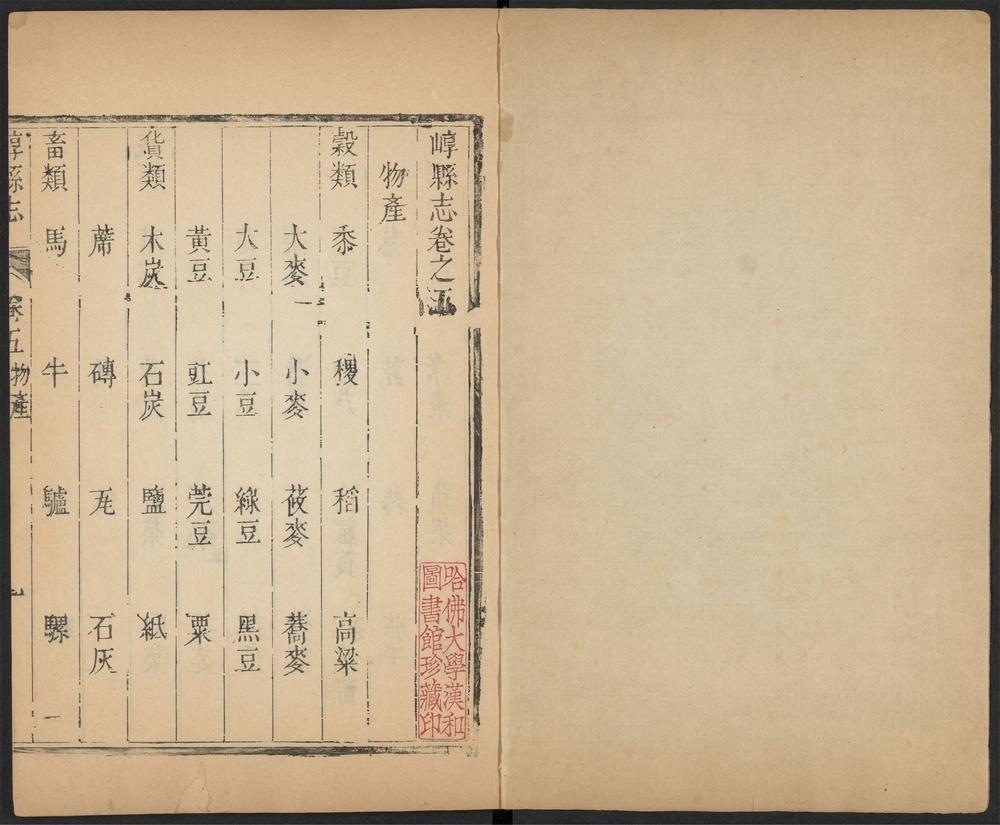 崞縣志卷之五
物產
穀類 黍 稷 稻 高粱
大麥 小麥 莜麥 蕎麥
大豆 小豆 綠豆 黑豆
黃豆 豇豆 莞豆 粟
貨類 木炭 石炭 鹽 紙
蓆 磚 瓦 石灰
畜類 馬 牛 驢 騾
崞縣志 卷五 物產 一
哈佛大學漢和
圖書館珍藏印